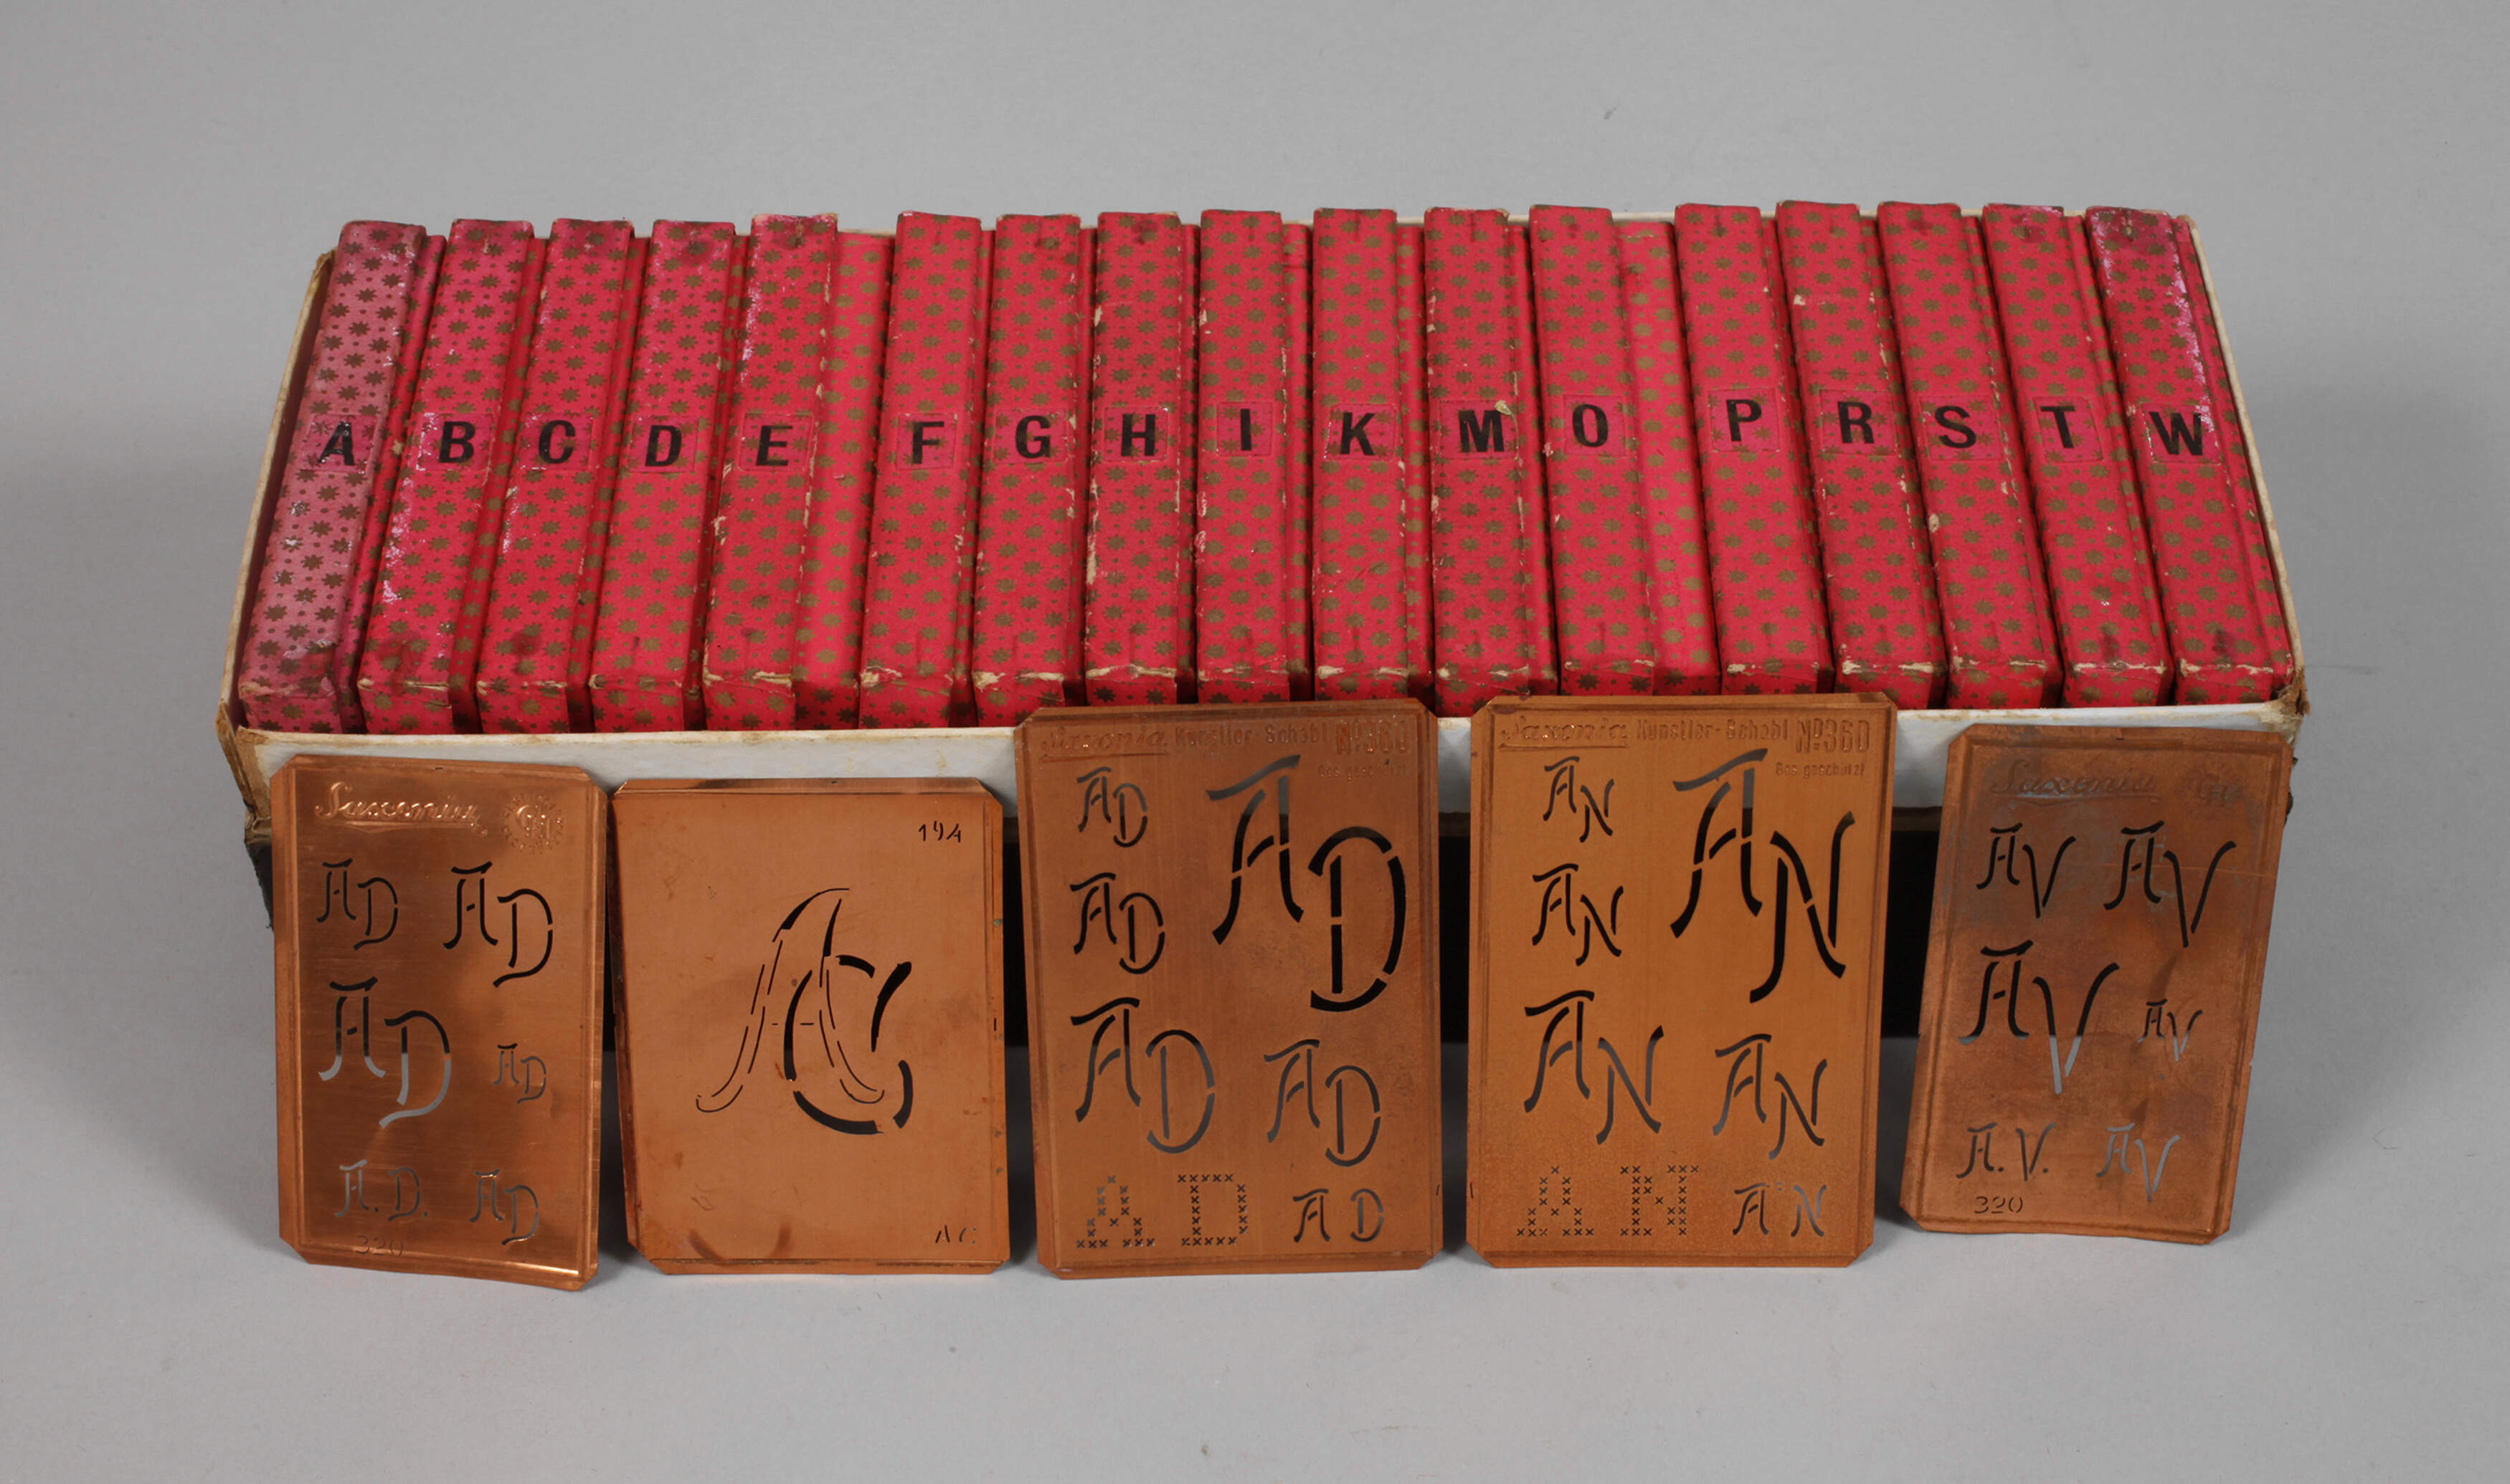 A B C D E F G H I K M O P R S T W
Saxonia
AD AD
AD AD
A.D. AD
320
194
AC
AC
Saxonia Künstler-Schabl Nº 360
Ges. geschützt
AD AD
AD
AD AD
AD AD
Saxonia Künstler-Schabl Nº 360
Ges. geschützt
AN AN
AN
AN AN
AN AN
Saxonia
AV AV
AV AV
A.V. AV
320